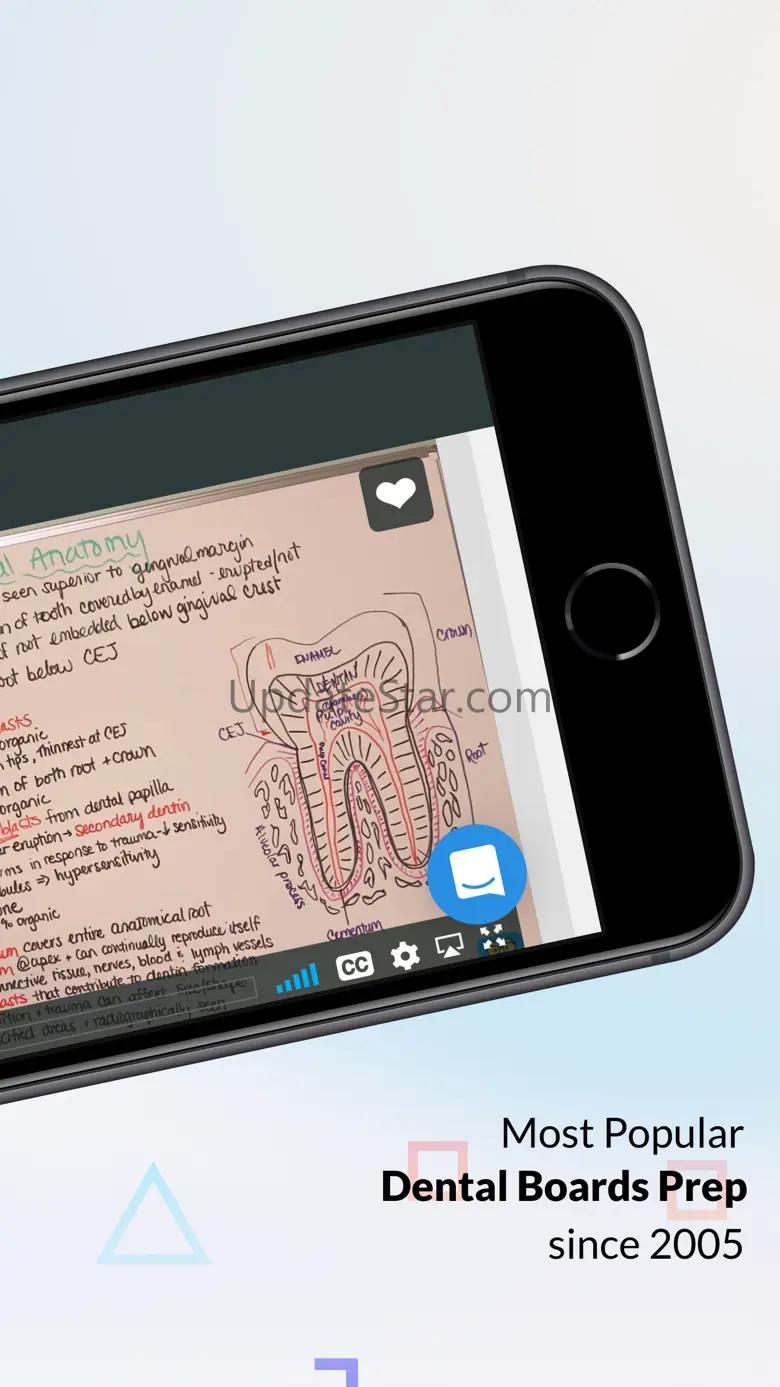 al Anatomy
seen superior to gingival margin
n of tooth covered by enamel - erupted/not
f root embedded below gingival crest
oot below CEJ
asts
organic
n tips, thinnest at CEJ
n of both root + crown
organic
blasts from dental papilla
er eruption → secondary dentin
rms in response to trauma - ↓ sensitivity
bules ⇒ hypersensitivity
one
% organic
um covers entire anatomical root
m @apex + can continually reproduce itself
nnective, tissue, nerves, blood & lymph vessels
asts that contribute to dentin formation
ition + trauma can affect size/shape
cified areas + radiographically seen
ENAMEL
Crown
DENTAN
chamber
PULP
cavity
CEJ
Root
Pulp Canal
Alveolar process
Cementum
CC
UpdateStar.com
Most Popular
Dental Boards Prep
since 2005